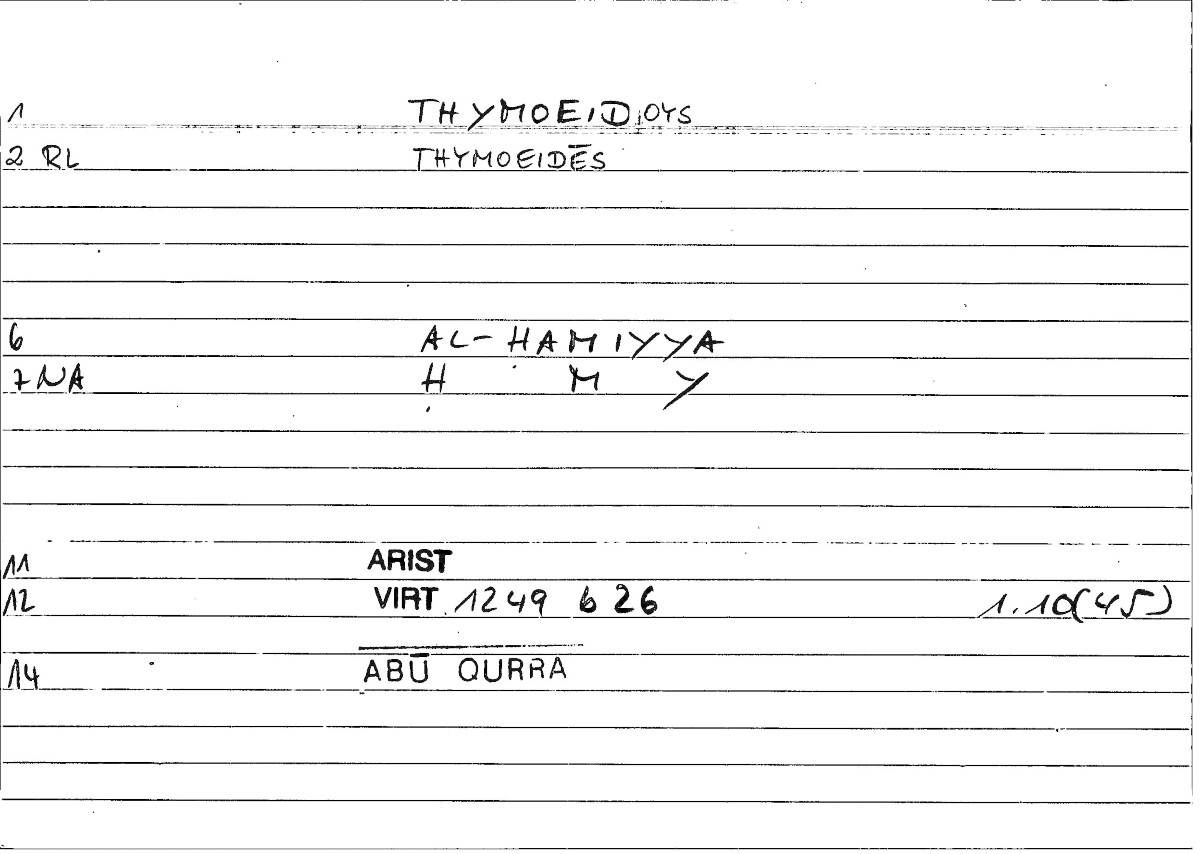 1 THYMOEIDOYS
2 RL THYMOEIDĒS
6 AL-ḤAMIYYA
7 NA Ḥ M Y
11 ARIST
12 VIRT 1249 b 26 1.10(45)
14 ABŪ QURRA